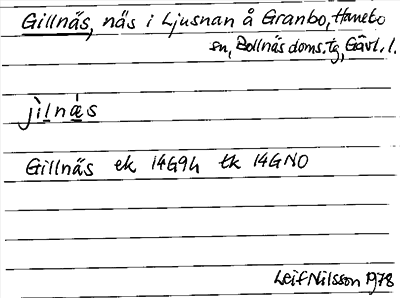 Gillnäs, näs i Ljusnan å Granbo, Hanebo
sn, Bollnäs doms. tg, Gävl. l.
jìlnǽs
Gillnäs ek 14G9h tk 14GNO
Leif Nilsson 1978